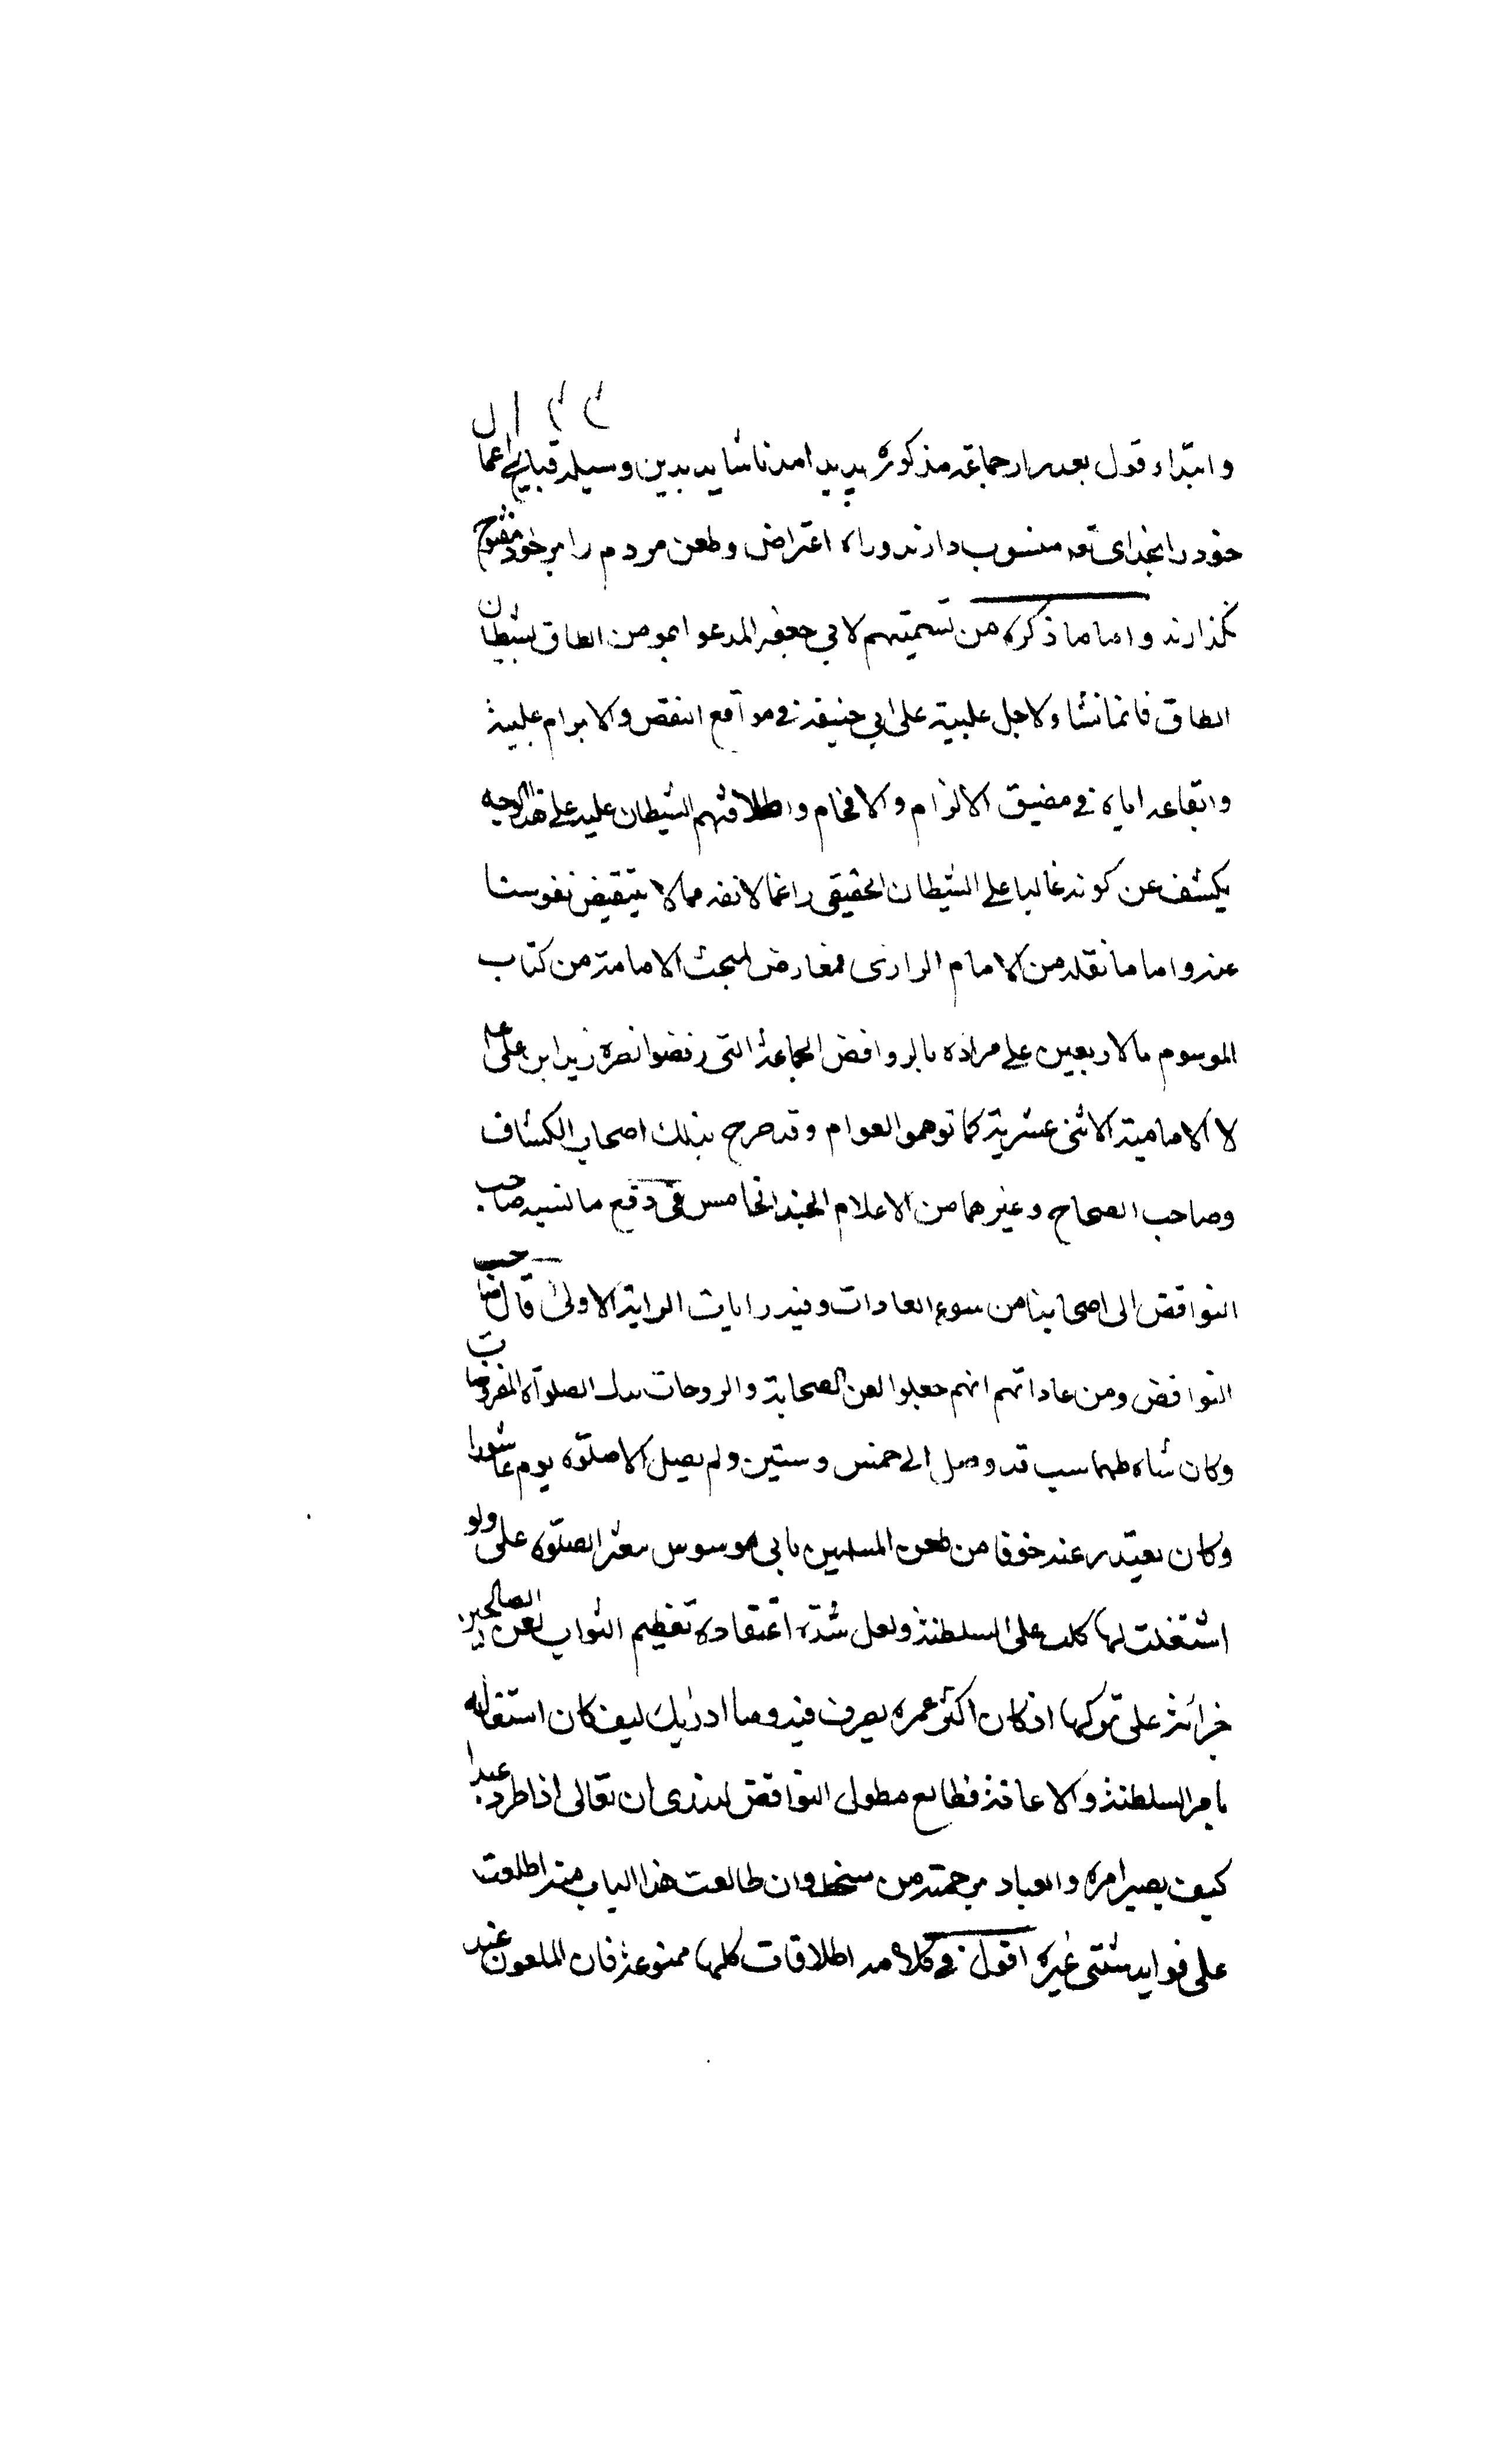 وابتداء قول بعدم از جماعة مذكوره پديد امد تا شايد بدين وسيله قبايح اعمال
خود را بخداى تعه منسوب دارند و راه اعتراض وطعن مردم را بر خود مفتوح
نگذارند واما ما ذكره من تسميتهم لابي جعفر المدعو بمومن الطاق بشيطان
الطاق فانما نشاء لاجل غلبيته على ابي حنيفه في مواقع النقض والابرام غلبية
وايقاعه اياه في مضيق الالزام والافحام واطلاقهم الشيطان عليه على هذا الوجه
يكشف عن كونه غالبا على الشيطان الحقيقي راغما لانفه مما لا يتقيض نفوسنا
عنه واما ما نقله من الامام الرازى فمعارض لمبحث الامامة من كتاب
الموسوم بالاربعين على مراده بالروافض الجماعة التي رفضوا نصره زيد ابن على
لا الامامية الاثنى عشرية كما توهمو العوام وقد صرح بذلك اصحاب الكشاف
وصاحب الصحاح وغيرهما من الاعلام الجند الخامس في دفع ما نسبه صاحب
النواقض الى اصحابنا من سوء العادات وفيه رايات الراية الاولى قال صاحب
النواقض ومن عاداتهم انهم جعلوا لعن الصحابة والزوجات بدل الصلوات المفروضات
وكان شاه طهماسب قد وصل الى خمس وستين ولم يصل الا صلوه يوم عاشورا
وكان يعتذر عنه خوفا من طعن المسلمين باني موسوس متعذر الصلوه على ولو
اشتغلت لها كلت على السلطنة ولعل شدة اعتقاده تعظيم الثواب لعن الصالحين
جرأته على تركها اذ كان اكثر عمره يصرف فيه وما ادريك كيف كان اشتغاله
بامر السلطنة والاعاقة فطالع مطول النواقض لتدرى ان تعالى اذا طرد عبدا
كيف يصير امره والعباد مرحمته من سخطه وان طالعت هذا الباب منه اطلعت
على فوايد شتى غيره اقول في كلامه اطلاقات كلها ممنوعة فان الملعون عند